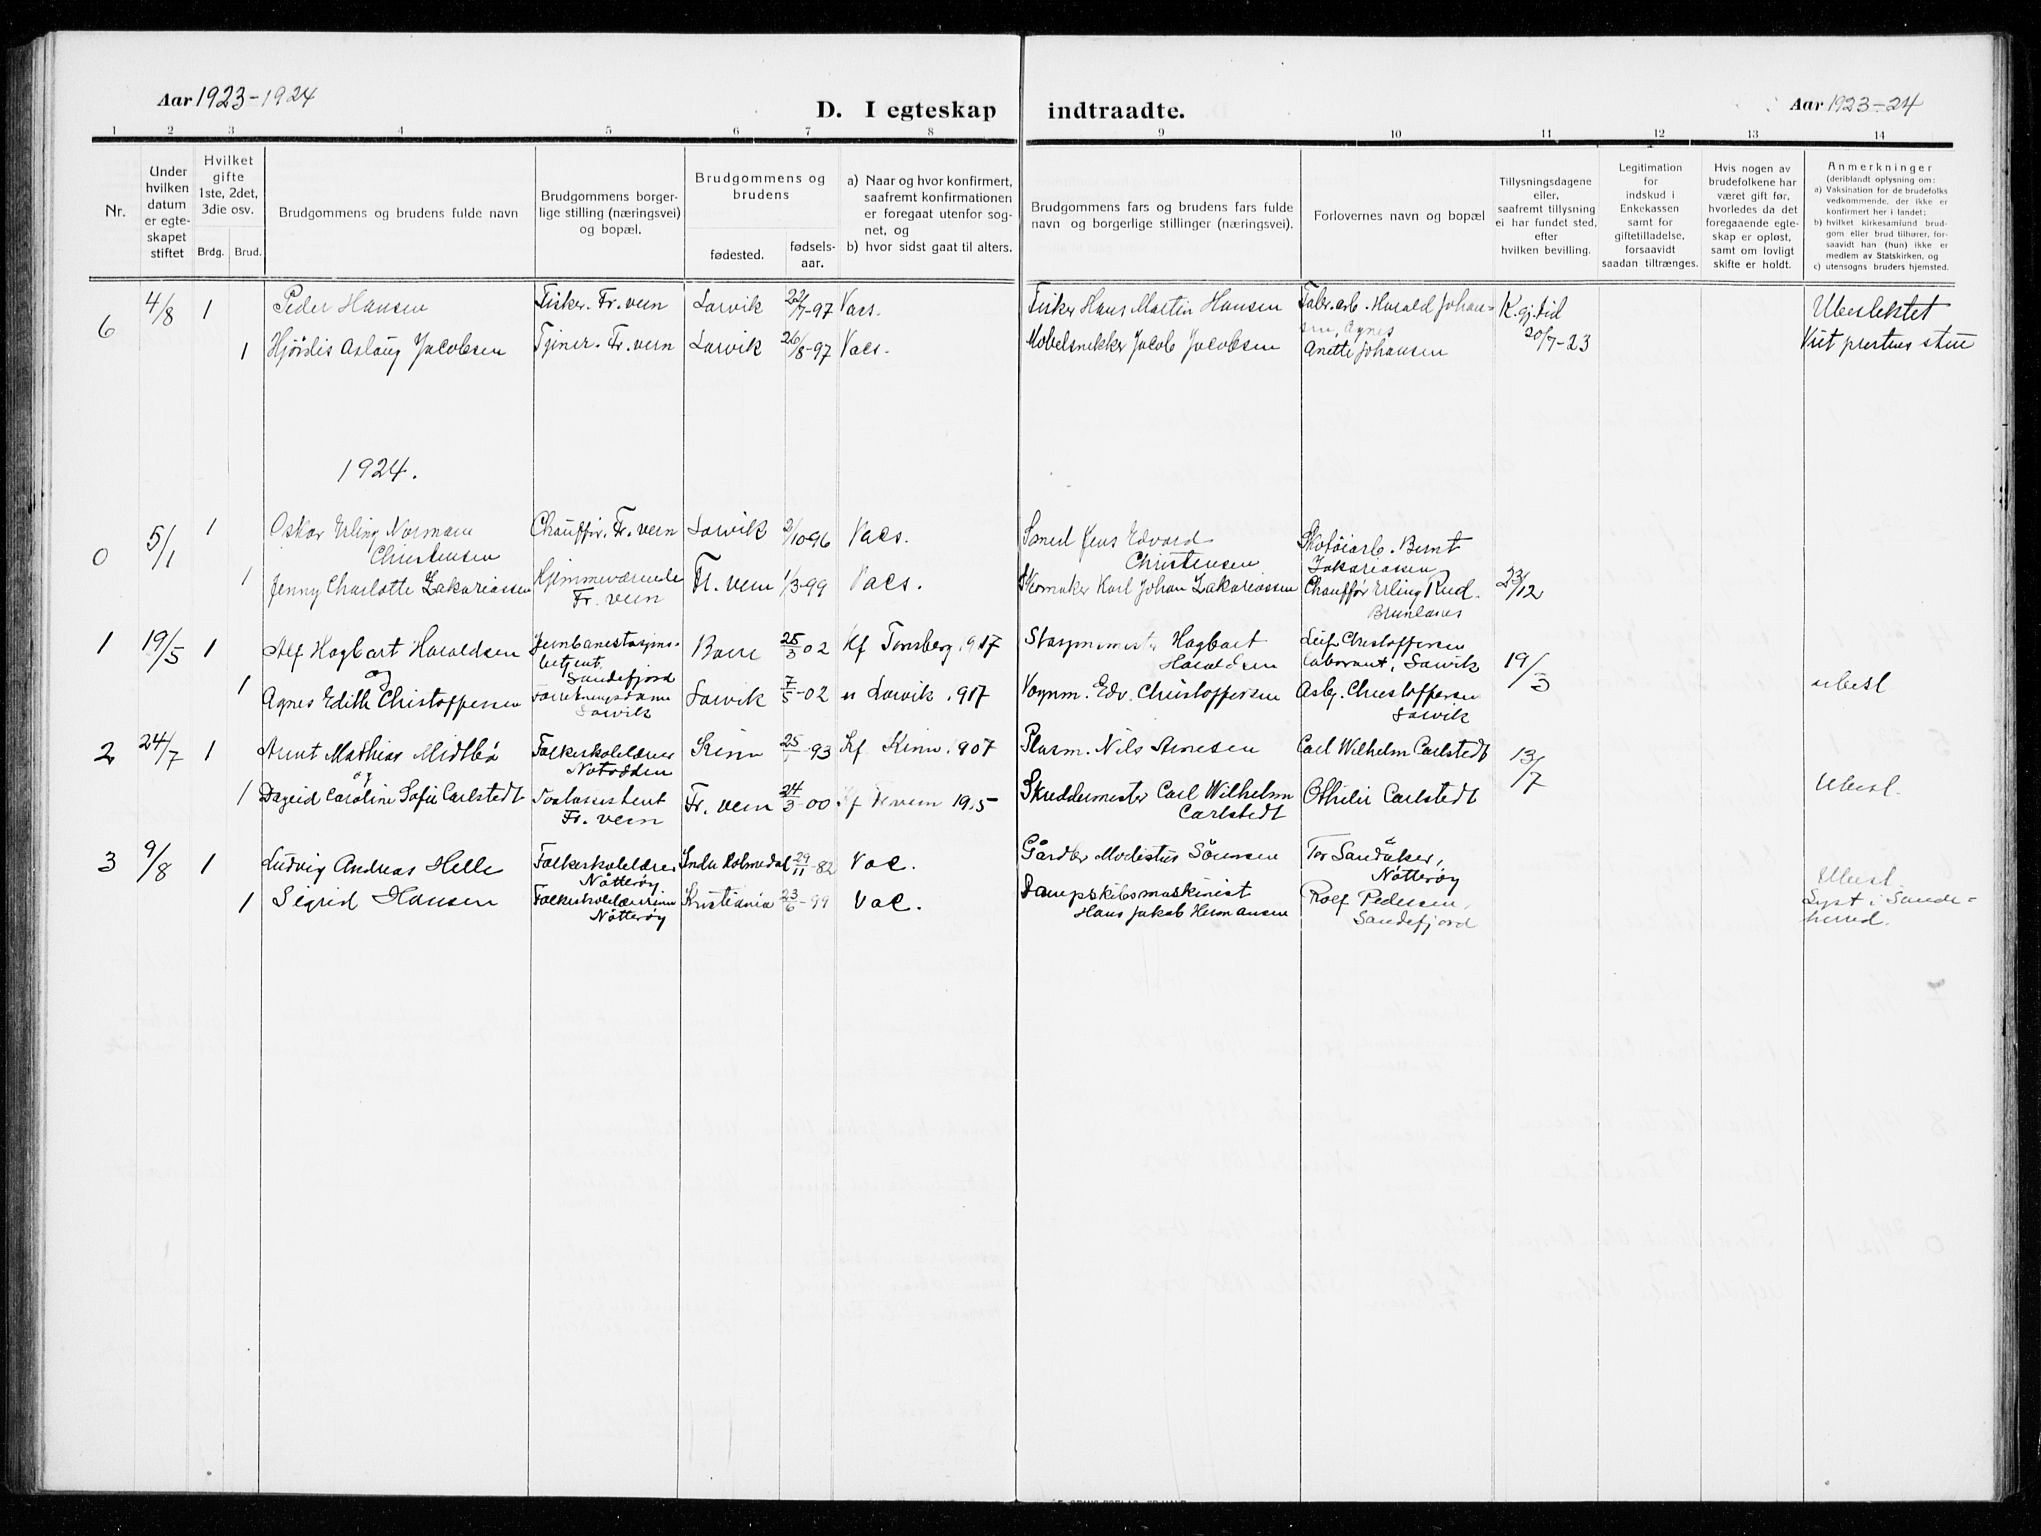 Aar 1923-1924
D. I egteskap indtraadte.
Aar 1923-24
1 2 3 4 5 6 7 8 9 10 11 12 13 14
Nr.
Under hvilken datum er egte- skapet stiftet
Hvilket gifte 1ste, 2det, 3die osv.
Brdg. Brud.
Brudgommens og brudens fulde navn
Brudgommens borger- lige stilling (næringsvei) og bopæl.
Brudgommens og brudens
fødested.
fødsels- aar.
a) Naar og hvor konfirmert, saafremt konfirmationen er foregaat utenfor sog- net, og
b) hvor sidst gaat til alters.
Brudgommens fars og brudens fars fulde navn og borgerlige stillinger (næringsvei).
Forlovernes navn og bopæl
Tillysningsdagene eller, saafremt tillysning ei har fundet sted, efter hvilken bevilling.
Legitimation for indskud i Enkekassen samt for giftetilladelse, forsaavidt saadan tiltrænges.
Hvis nogen av brudefolkene har været gift før, hvorledes da det foregaaende egte- skap er opløst, samt om lovligt skifte er holdt.
Anmerkninger
(deriblandt oplysning om:
a) Vaksination for de brudefolks vedkommende, der ikke er konfirmert her i landet;
b) hvilket kirkesamfund brud- gom eller brud tilhører, for- saavidt han (hun) ikke er medlem av Statskirken, og
c) utensogns bruders hjemsted.
6 4/8 1 Peder Hansen Fisker. Fr. vern Larvik 22/7-97 Vacs. Fisker Hans Martin Hansen Fabr. arb. Harald Johan- K. gj. tid Ubeslektet
sen, Agnes
1 Hjørdis Aslaug Jacobsen Tjener. Fr. vern Larvik 26/8-97 Vacs. Møbelsnekker Jacob Jacobsen Anette Johansen 20/7-23 Viet prestens stue
1924.
0 5/1 1 Oskar Erling Normann Chauffør. Fr. vern Larvik 2/10-96 Vacs. Smed Jens Edvard Skotøiarb. Bernt
Christensen Christensen Zakariassen
1 Jenny Charlotte Zakariassen Hjemmeværende Fr. vern 1/3-99 Vacs. Skomaker Karl Johan Zakariassen Chauffør Erling Rud. 23/12
Fr. vern Brunlanes
1 19/5 1 Alf Hagbart Haraldsen Jernbanestasjons- Borre 25/3-02 Kf Tønsberg 1917 Hagbart Leif Christoffersen 19/3
og betjent, Haraldsen laborant, Larvik
Sandefjord
1 Agnes Edith Christoffersen Larvik 7/5-02 " Larvik 1917 Vognm. Edv. Christoffersen Asbj. Christoffersen ubesl
Larvik Larvik
2 24/7 1 Arnt Mathias Midtbø Folkeskolelærer Kinn 25/ -93 Kf Kinn 1907 Nils Arnesen Carl Wilhelm Carlstedt 13/7
og Notodden
1 Dagrid Caroline Sofie Carlstedt Fr. vern 24/3-00 Kf Fr vern 1915 Skreddermester Carl Wilhelm Othilie Carlstedt Ubesl.
Fr. vern Carlstedt
3 9/8 1 Ludvig Andreas Helle Folkeskolelærer Indre Holmedal 29/11-82 Vac. Gårdbr Modestus Sørensen Tor Sandåker,
Nøtterøy Nøtterøy Ubesl.
1 Sigrid Hansen Folkeskolelærerinne Kristiania 23/6-99 Vac. Dampskibsmaskinist Rolf Pedersen, Lyst i Sande-
Nøtterøy Hans Jakob Hermansen Sandefjord herred.